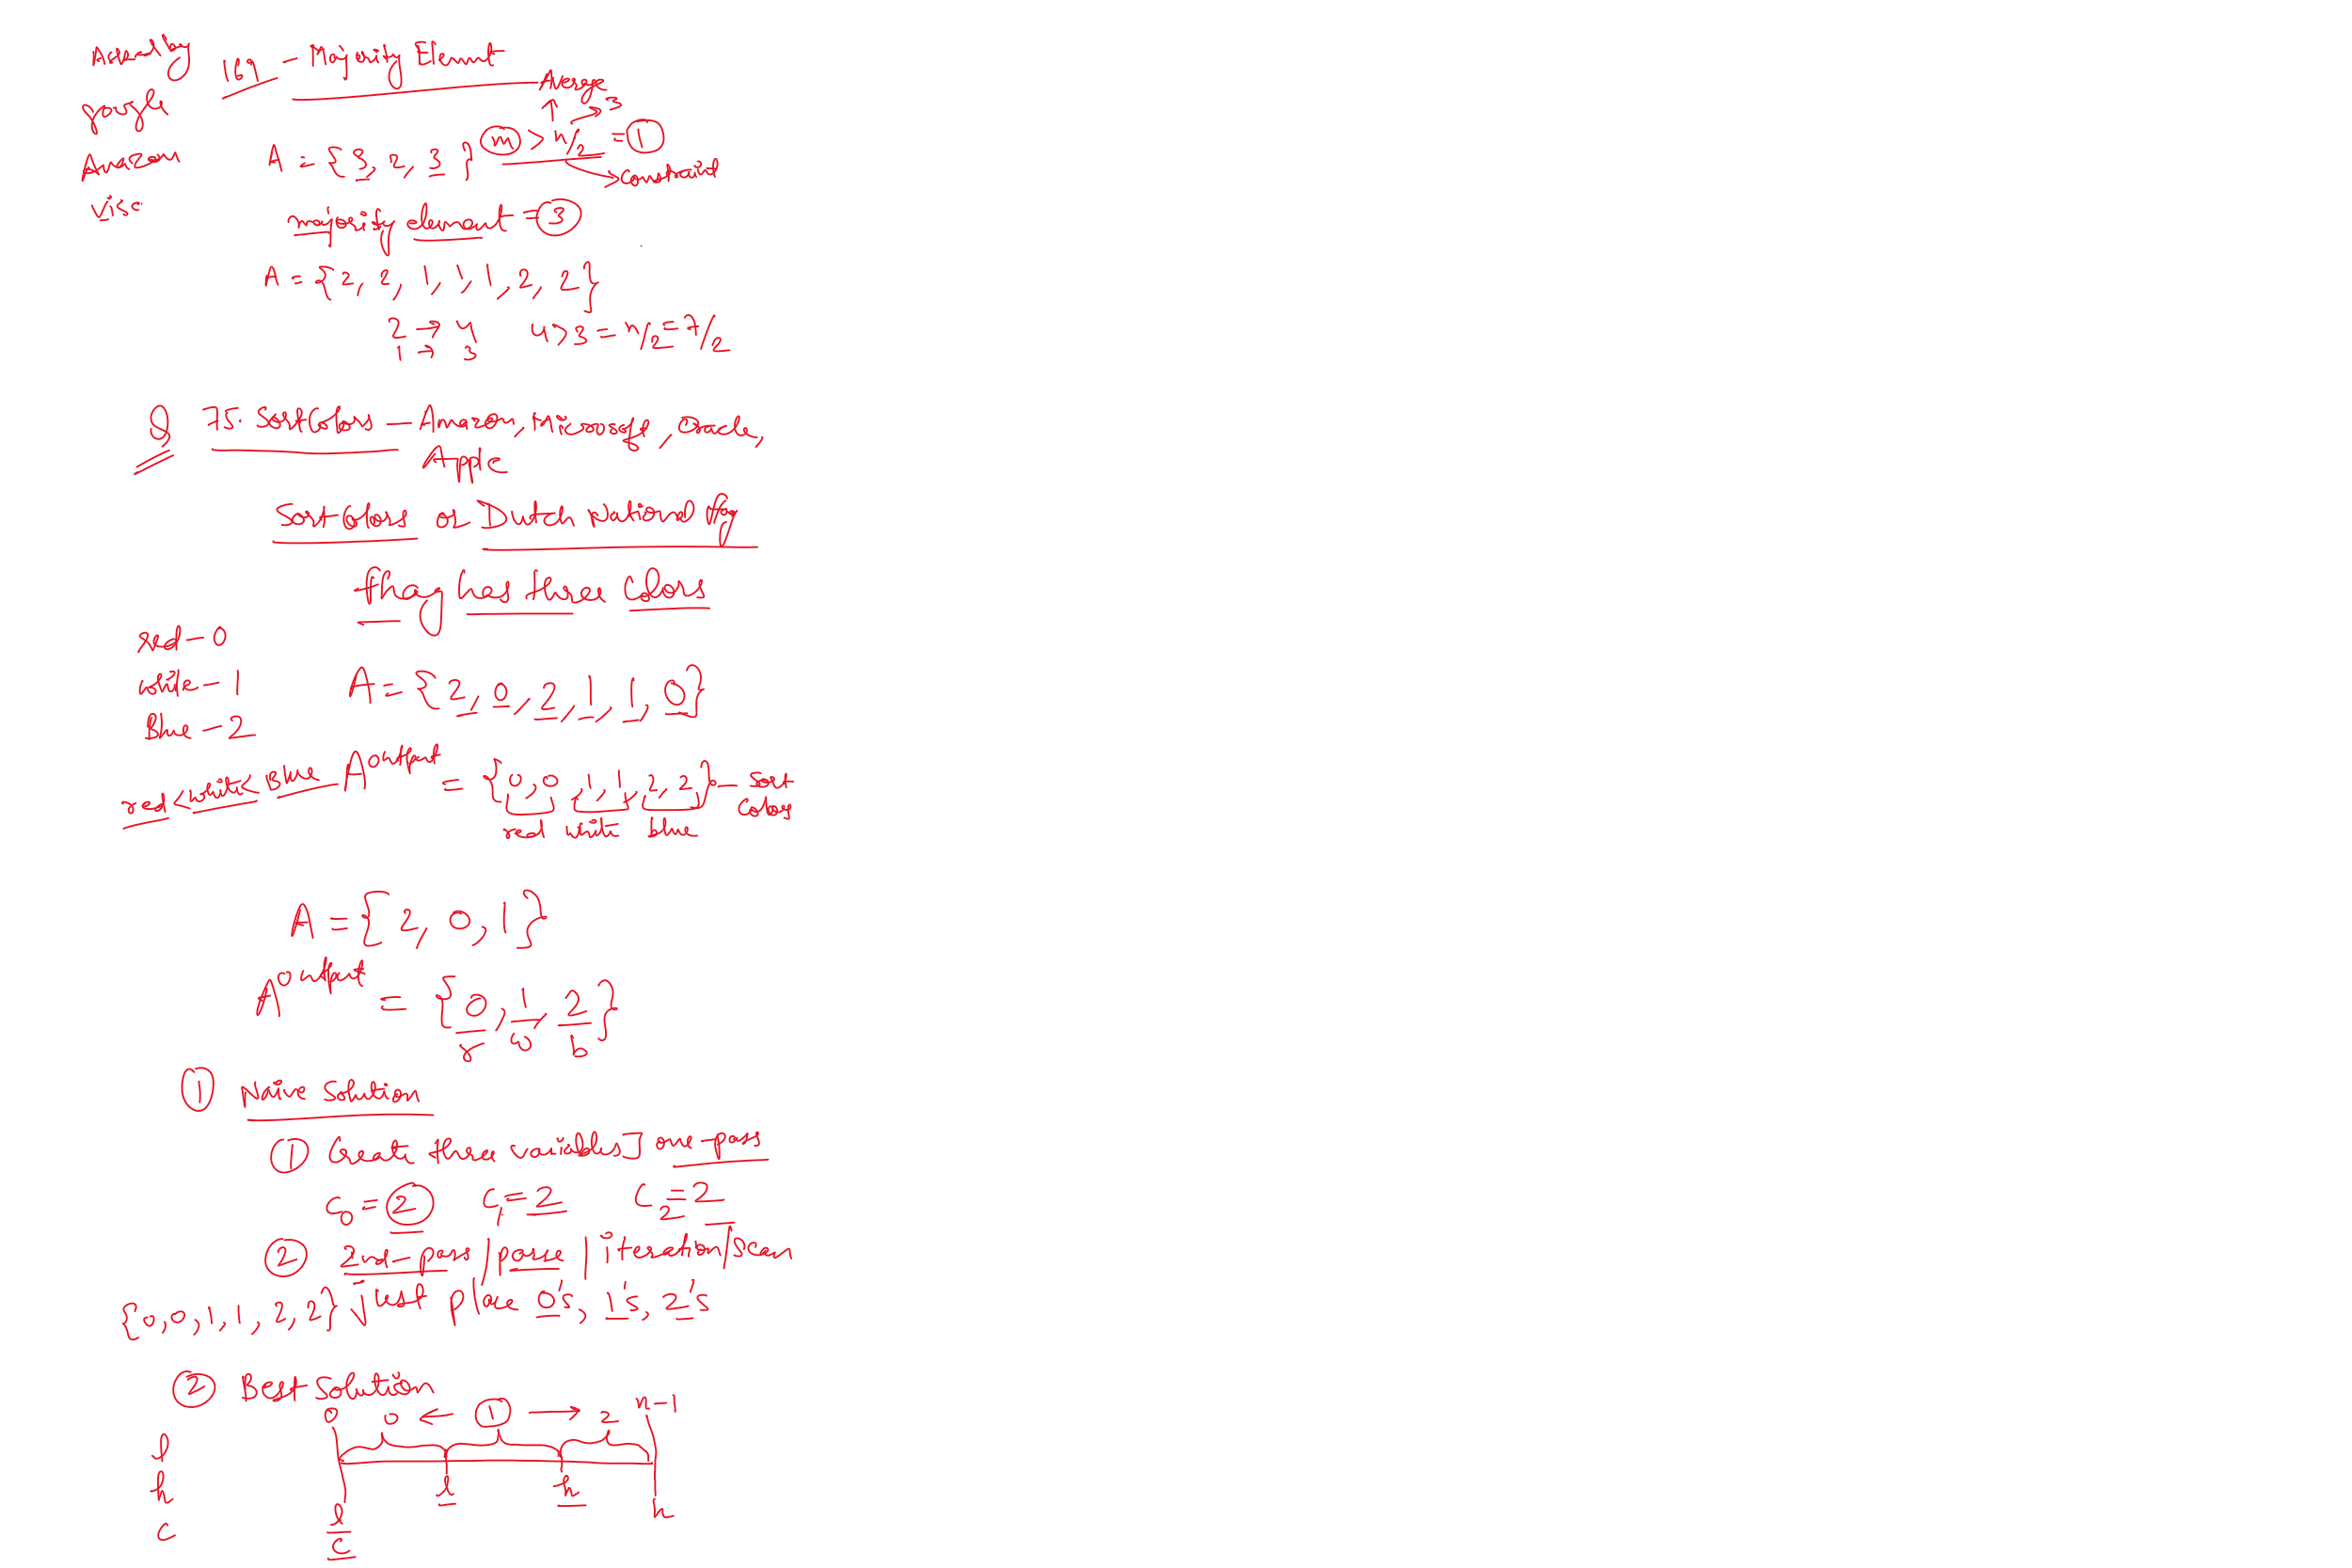 Asked by
google
Amazon
Visa
169 - Majority Element
A = {3, 2, 3} m > n/2 = 1
Average
→ 3
→ Constraint
majority element = 3
A = {2, 2, 1, 1, 1, 2, 2}
2 → 4 4 > 3 = n/2 = 7/2
1 → 3
Q 75. SortColors — Amazon, Microsoft, Oracle,
Apple
Sort Colors or Dutch National flag
flag has three colors
red - 0
white - 1
Blue - 2
A = {2, 0, 2, 1, 1, 0}
red < white < Blue
A output = {0, 0, 1, 1, 2, 2} — Sort Colors
red white blue
A = {2, 0, 1}
A output = {0, 1, 2}
r w b
① Naive Solution
① Create three variables] one-pass
c0 = 2 c1 = 2 c2 = 2
② 2nd-pass / parse / iteration / scan
{0, 0, 1, 1, 2, 2} just place 0's, 1's, 2's
② Best Solution
0 0 ← 1 → 2 n-1
l
h
c
l h
l h
c